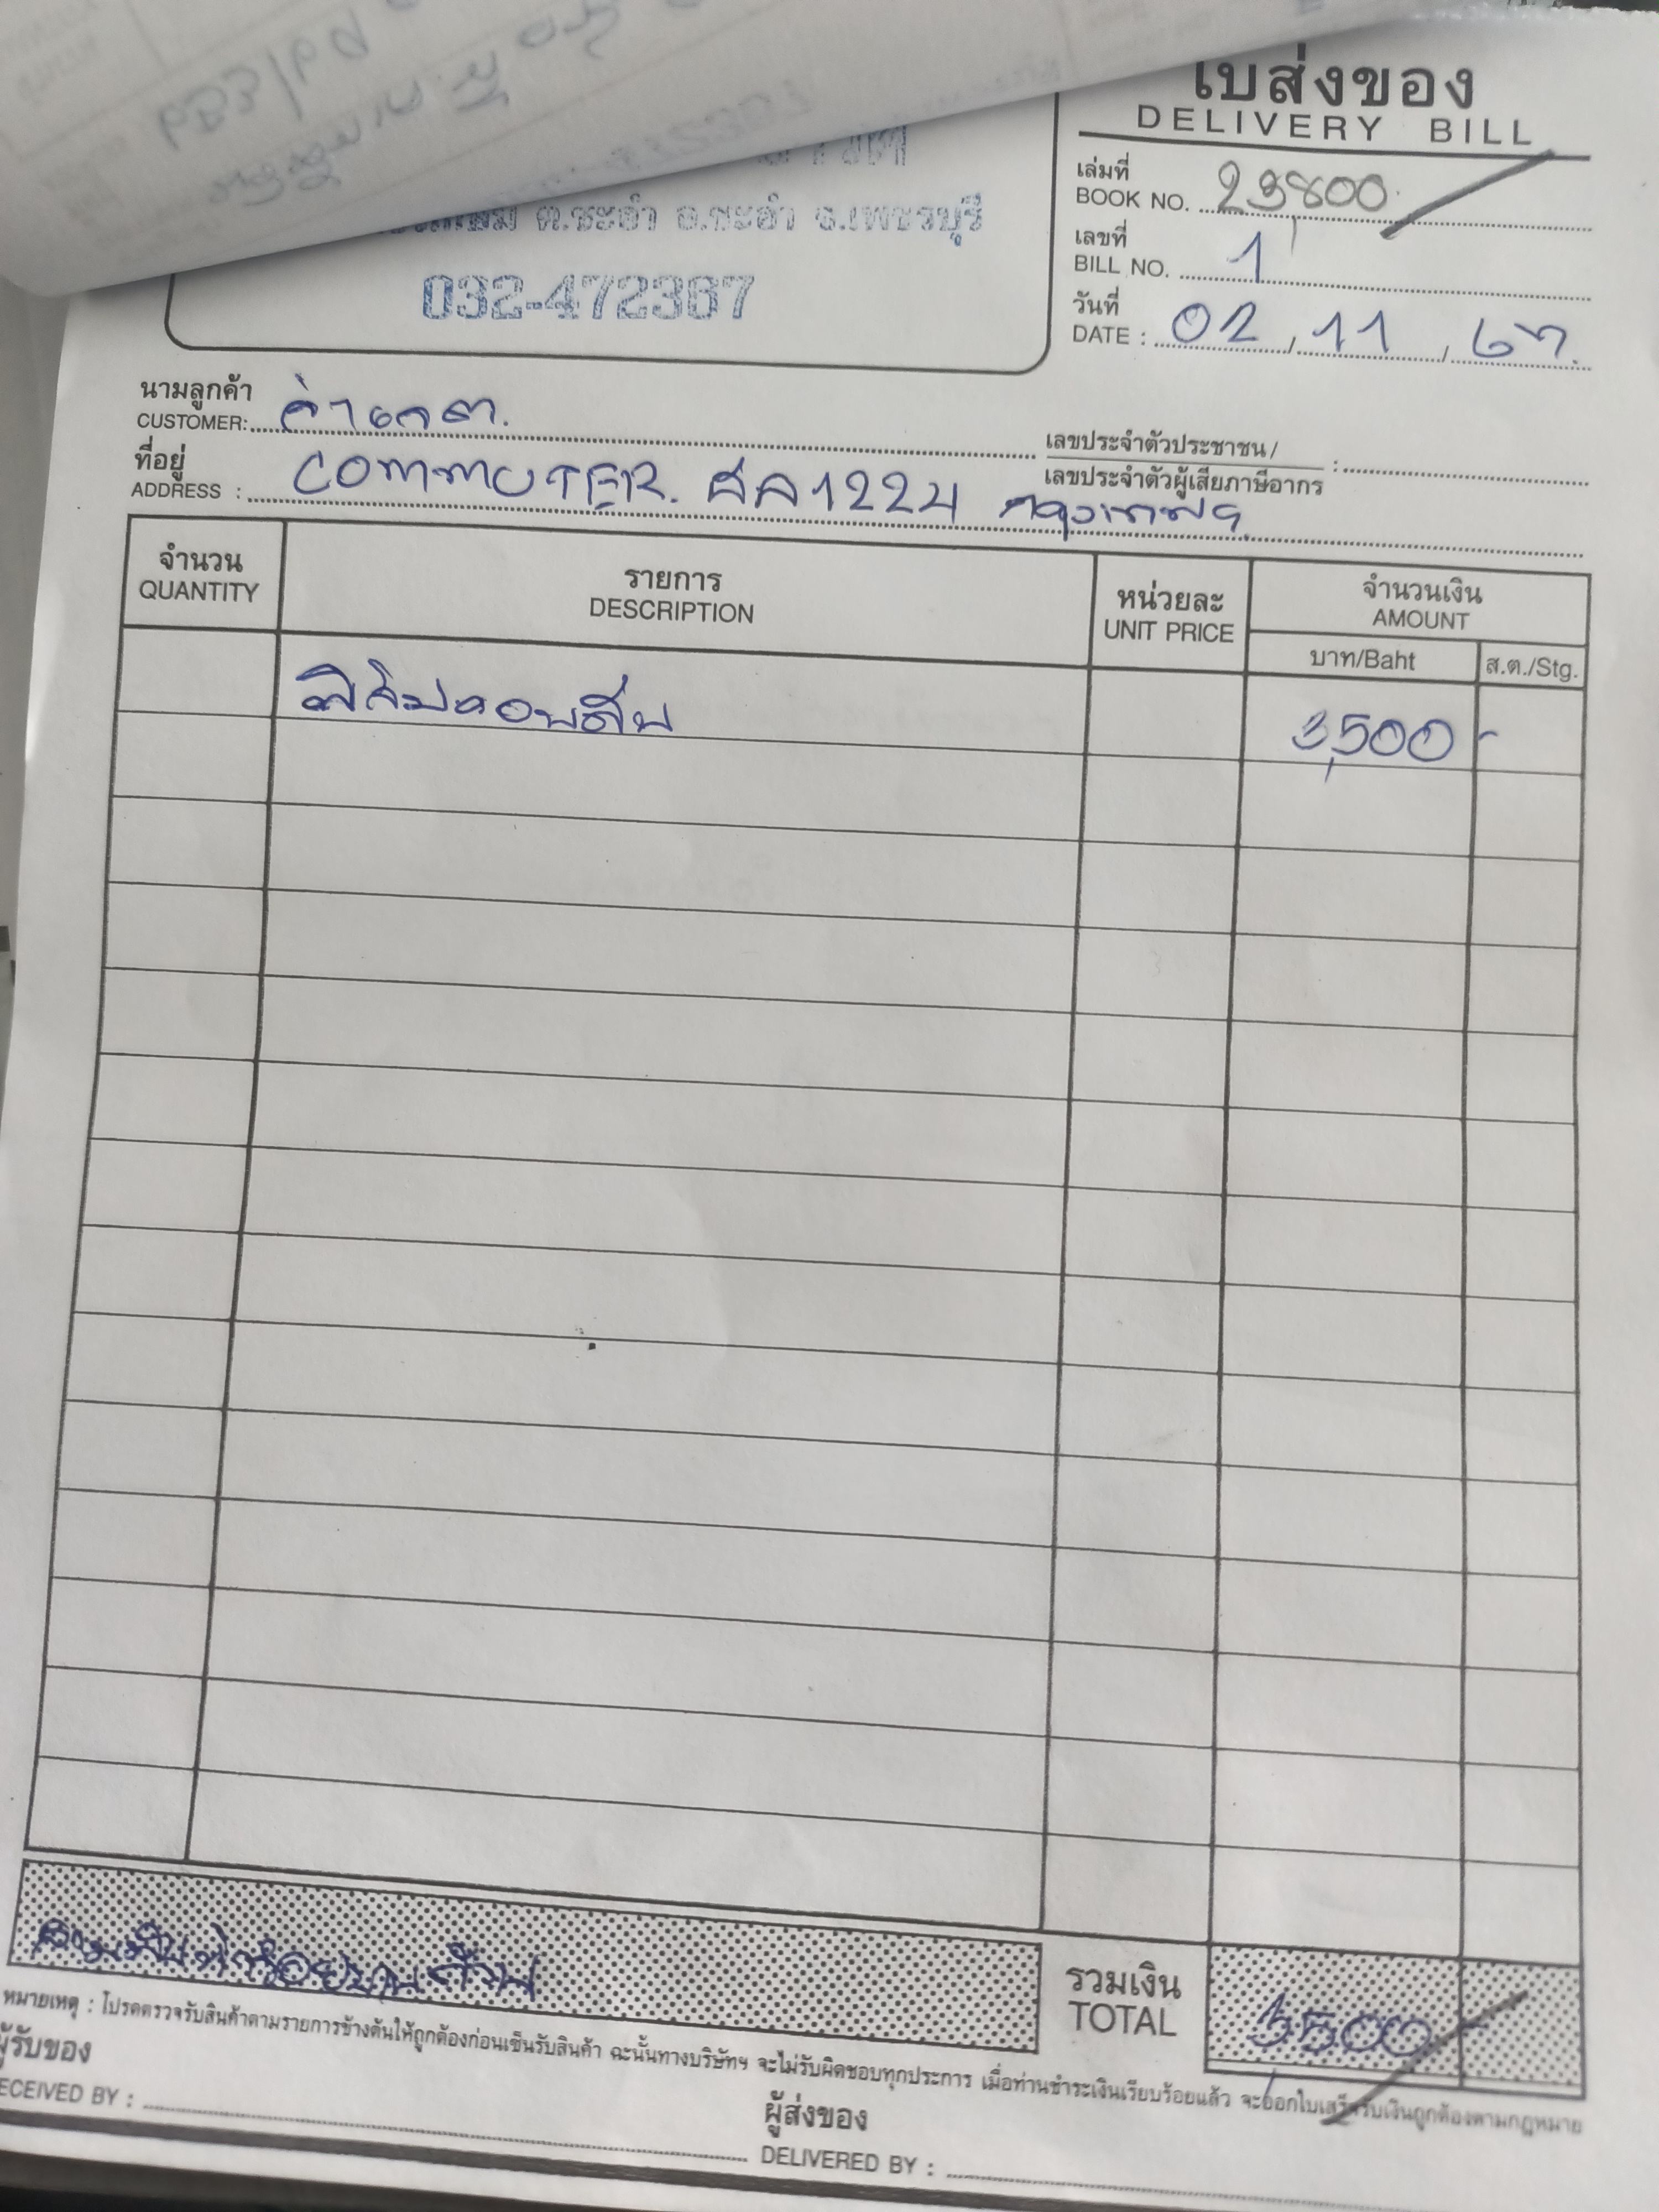 ใบส่งของ
DELIVERY BILL
ต.ชะอำ อ.ชะอำ จ.เพชรบุรี
032-472367
เล่มที่
BOOK NO. 23,800
เลขที่
BILL NO. 1
วันที่
DATE : 02 / 11 / 67
นามลูกค้า
CUSTOMER:
เลขประจำตัวประชาชน /
เลขประจำตัวผู้เสียภาษีอากร :
ที่อยู่
ADDRESS : COMMUTER. ฮล 1224 กรุงเทพฯ
จำนวน
QUANTITY
รายการ
DESCRIPTION
หน่วยละ
UNIT PRICE
จำนวนเงิน
AMOUNT
บาท/Baht ส.ต./Stg.
3,500 -
สามพันห้าร้อยบาทถ้วน
รวมเงิน
TOTAL 3,500 -
หมายเหตุ : โปรดตรวจรับสินค้าตามรายการข้างต้นให้ถูกต้องก่อนเซ็นรับสินค้า ฉะนั้นทางบริษัทฯ จะไม่รับผิดชอบทุกประการ เมื่อท่านชำระเงินเรียบร้อยแล้ว จะออกใบเสร็จรับเงินถูกต้องตามกฎหมาย
ผู้รับของ
RECEIVED BY :
ผู้ส่งของ
DELIVERED BY :